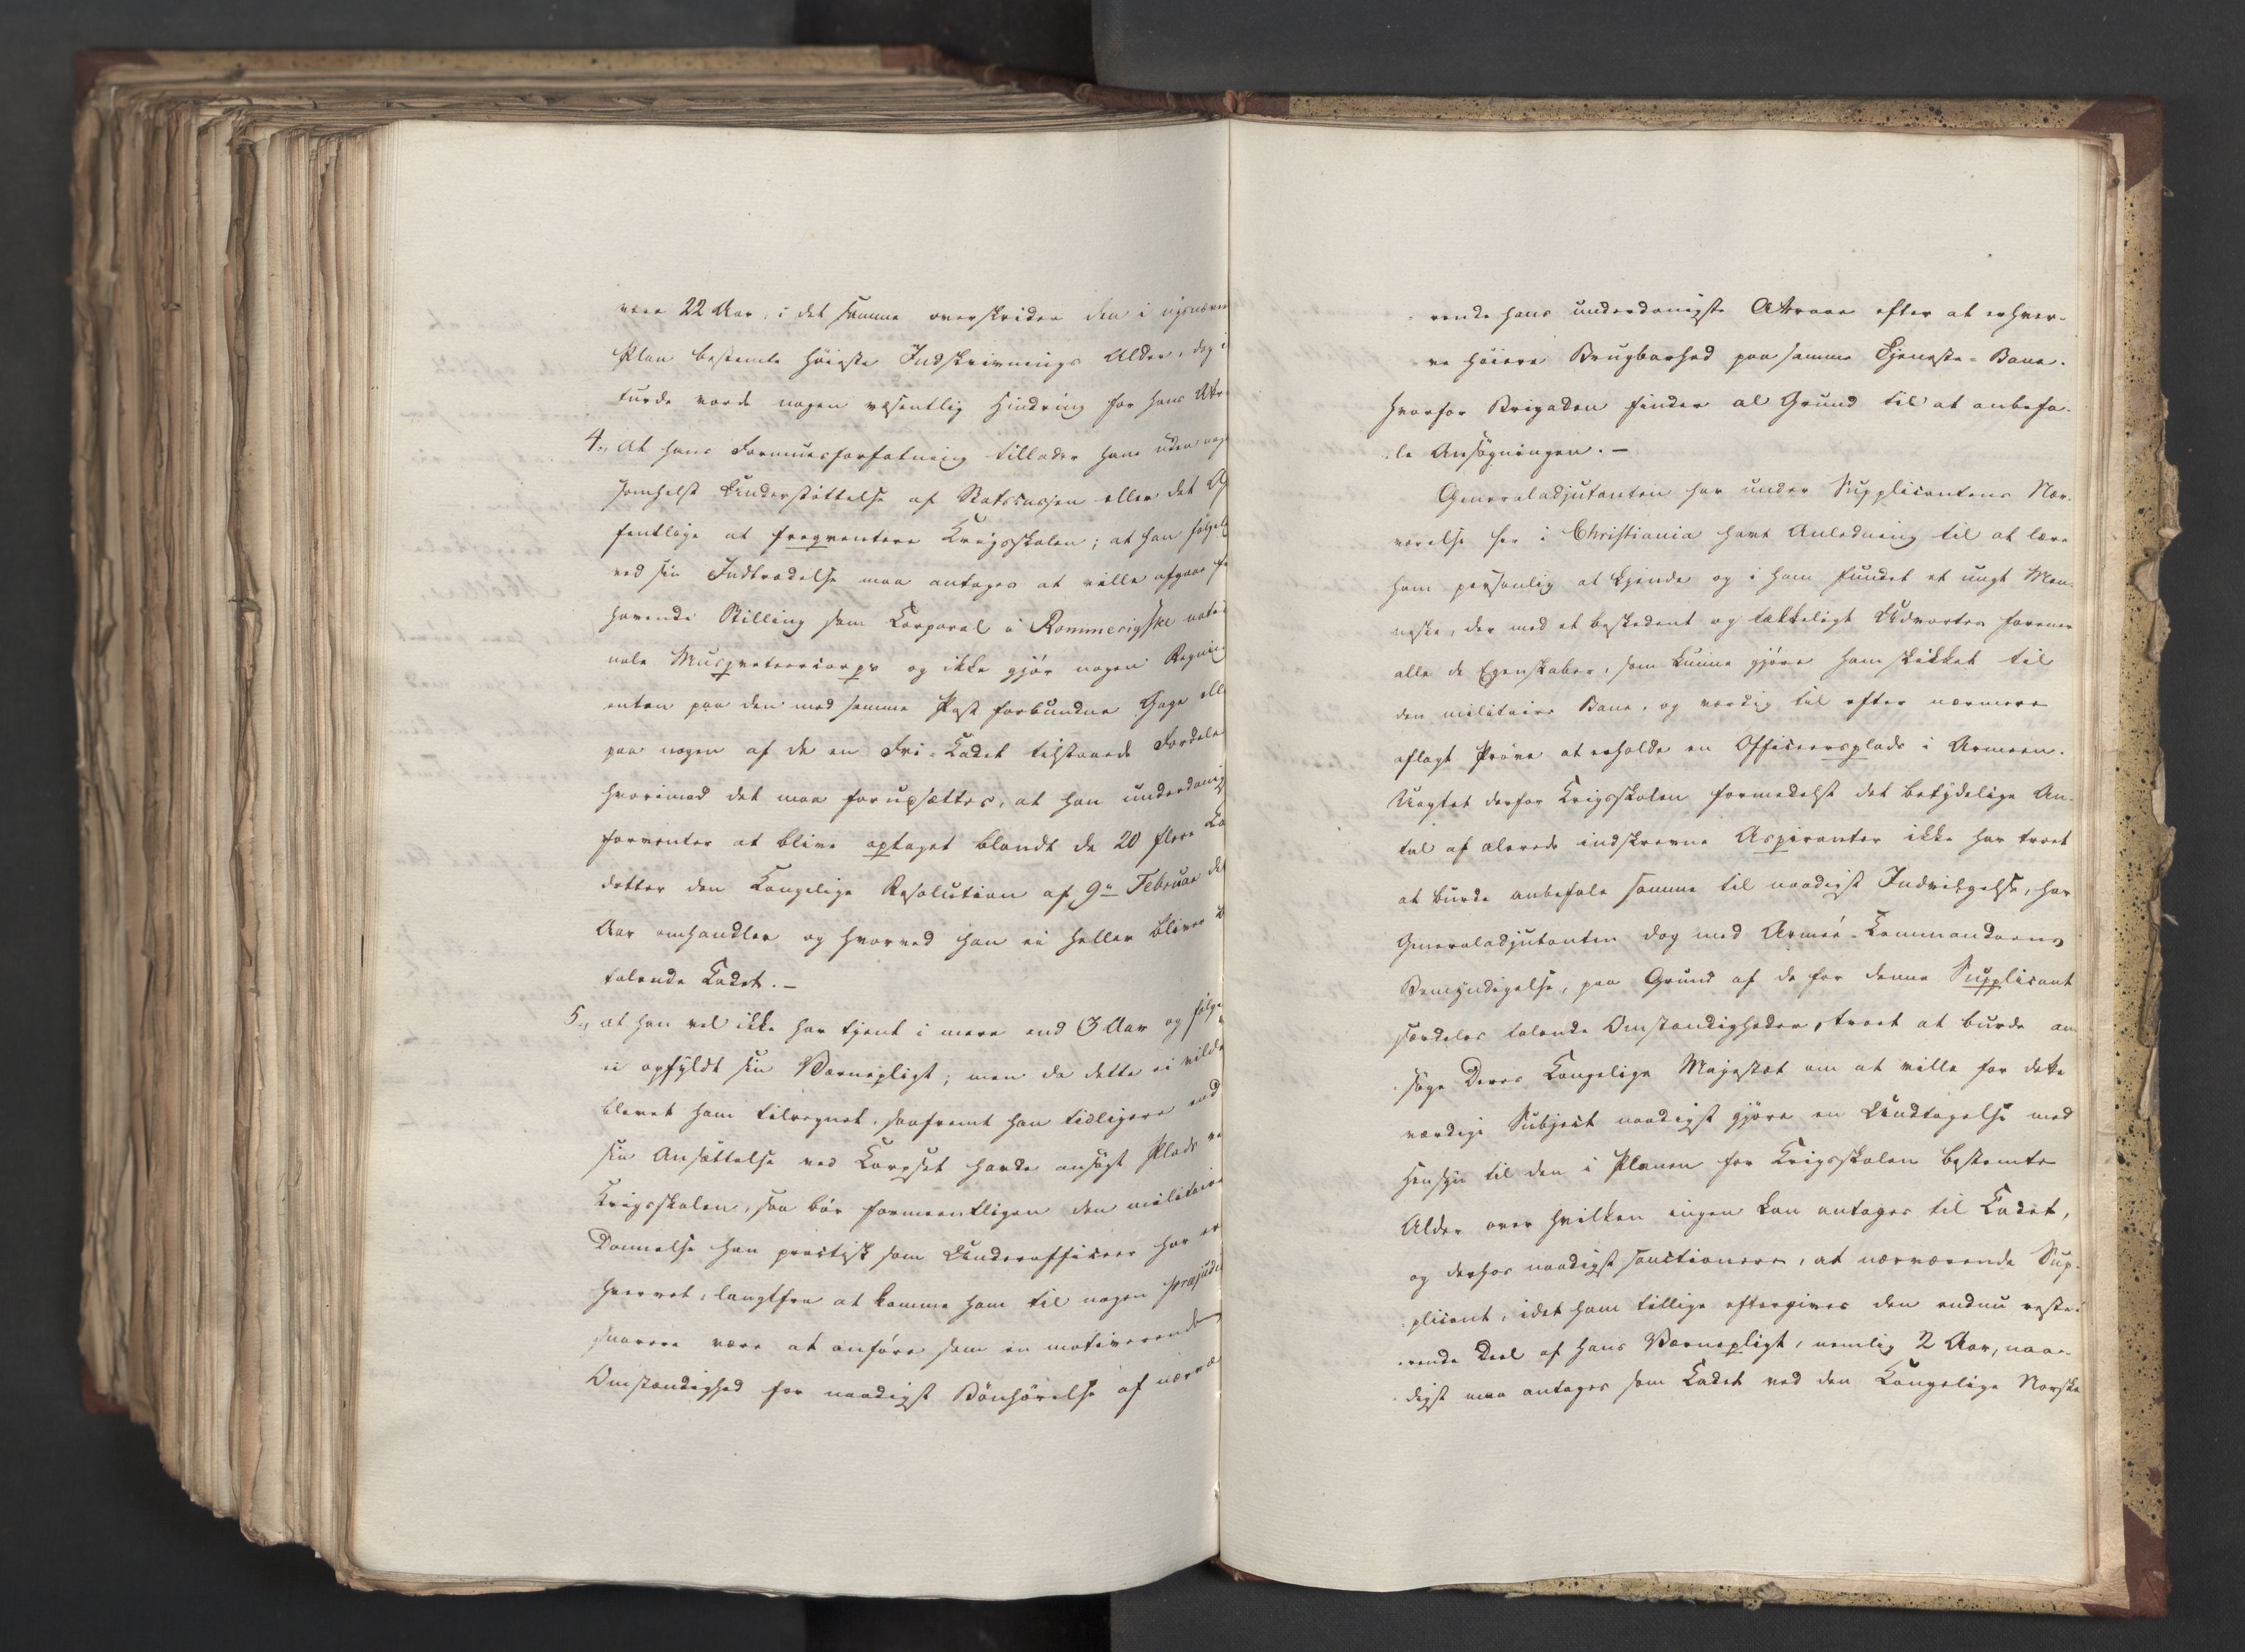 være 22 Aar, i det samme overskrider den i
Plan bestemte høieste Indskrivnings Alder, dog i
turde vorde nogen væsentlig Hindring for hans
4., At hans Formuesforfatning tillader ham uden
somhelst Understöttelse af Statscassen eller det
fentlige at freqventere Krigsskolen; at han
ved sin Indtrædelse maa antages at ville afgaae
havende Stilling som Corporal i Rommerigske
nale Musqveteercorps og ikke gjör nogen Regning
enten paa den med samme Post forbundne Gage
paa nogen af de en Fri-Cadet tilstaaede Fordele
hvorimod det maa forudsættes, at han underdanig
forventer at blive optaget blandt de 20 flere
detter den Kongelige Resolution af 9de Februar
Aar omhandler og hvorved han ei heller bliver
talende Cadet. –
5., at han vel ikke har tjent i mere end 3 Aar og
ei opfyldt sin Værnepligt; men da dette ei vilde
blevet ham tilregnet, saafremt han tidligere end
sin Ansættelse ved Corpset havde ansögt Plads
Krigsskolen, saa bör formeentligen den militaire
Dannelse han practisk som Underofficeer har er
hvervet, langtfra at komme ham til nogen præjudi
snarere være at anföre som en motiverende
Omstændighed for naadigst Bönhörelse af nærvæ
rende hans underdanigste Attraae efter at erhver-
ve höiere Brugbarhed paa samme Tjeneste-Bane.
Hvorfor Brigaden finder al Grund til at anbefa-
le Ansögningen. –
Generaladjutanten har under Supplicantens Nær-
værelse her i Christiania havt Anledning til at lære
ham personlig at kjende og i ham fundet et ungt Men-
neske, der med et beskedent og tækkeligt Udvortes forener
alle de Egenskaber, som kunne gjöre ham skikket til
den militaire Bane, og værdig til efter nærmere
aflagt Pröve at erholde en Officeersplads i Armeen.
Uagtet derfor Krigsskolen formedelst det betydelige An-
tal af alerede indskrevne Aspiranter ikke har troet
at burde anbefale samme til naadigst Indvilgelse, har
Generaladjutanten dog med Armee-Commandoens
Bemyndigelse, paa Grund af de for denne Supplicant
særdeles talende Omstændigheder, troet at burde an
söge Deres Kongelige Majestæt om at ville for dette
værdige Subject naadigst gjöre en Undtagelse med
Hensyn til den i Planen for Krigsskolen bestemte
Alder over hvilken ingen kan antages til Cadet,
og derhos naadigst sanctionere, at nærværende Sup-
plicant, idet ham tillige eftergives den endnu reste-
rende Deel af hans Værnepligt, nemlig 2 Aar, naa-
digst maa antages som Cadet ved den Kongelige Norske